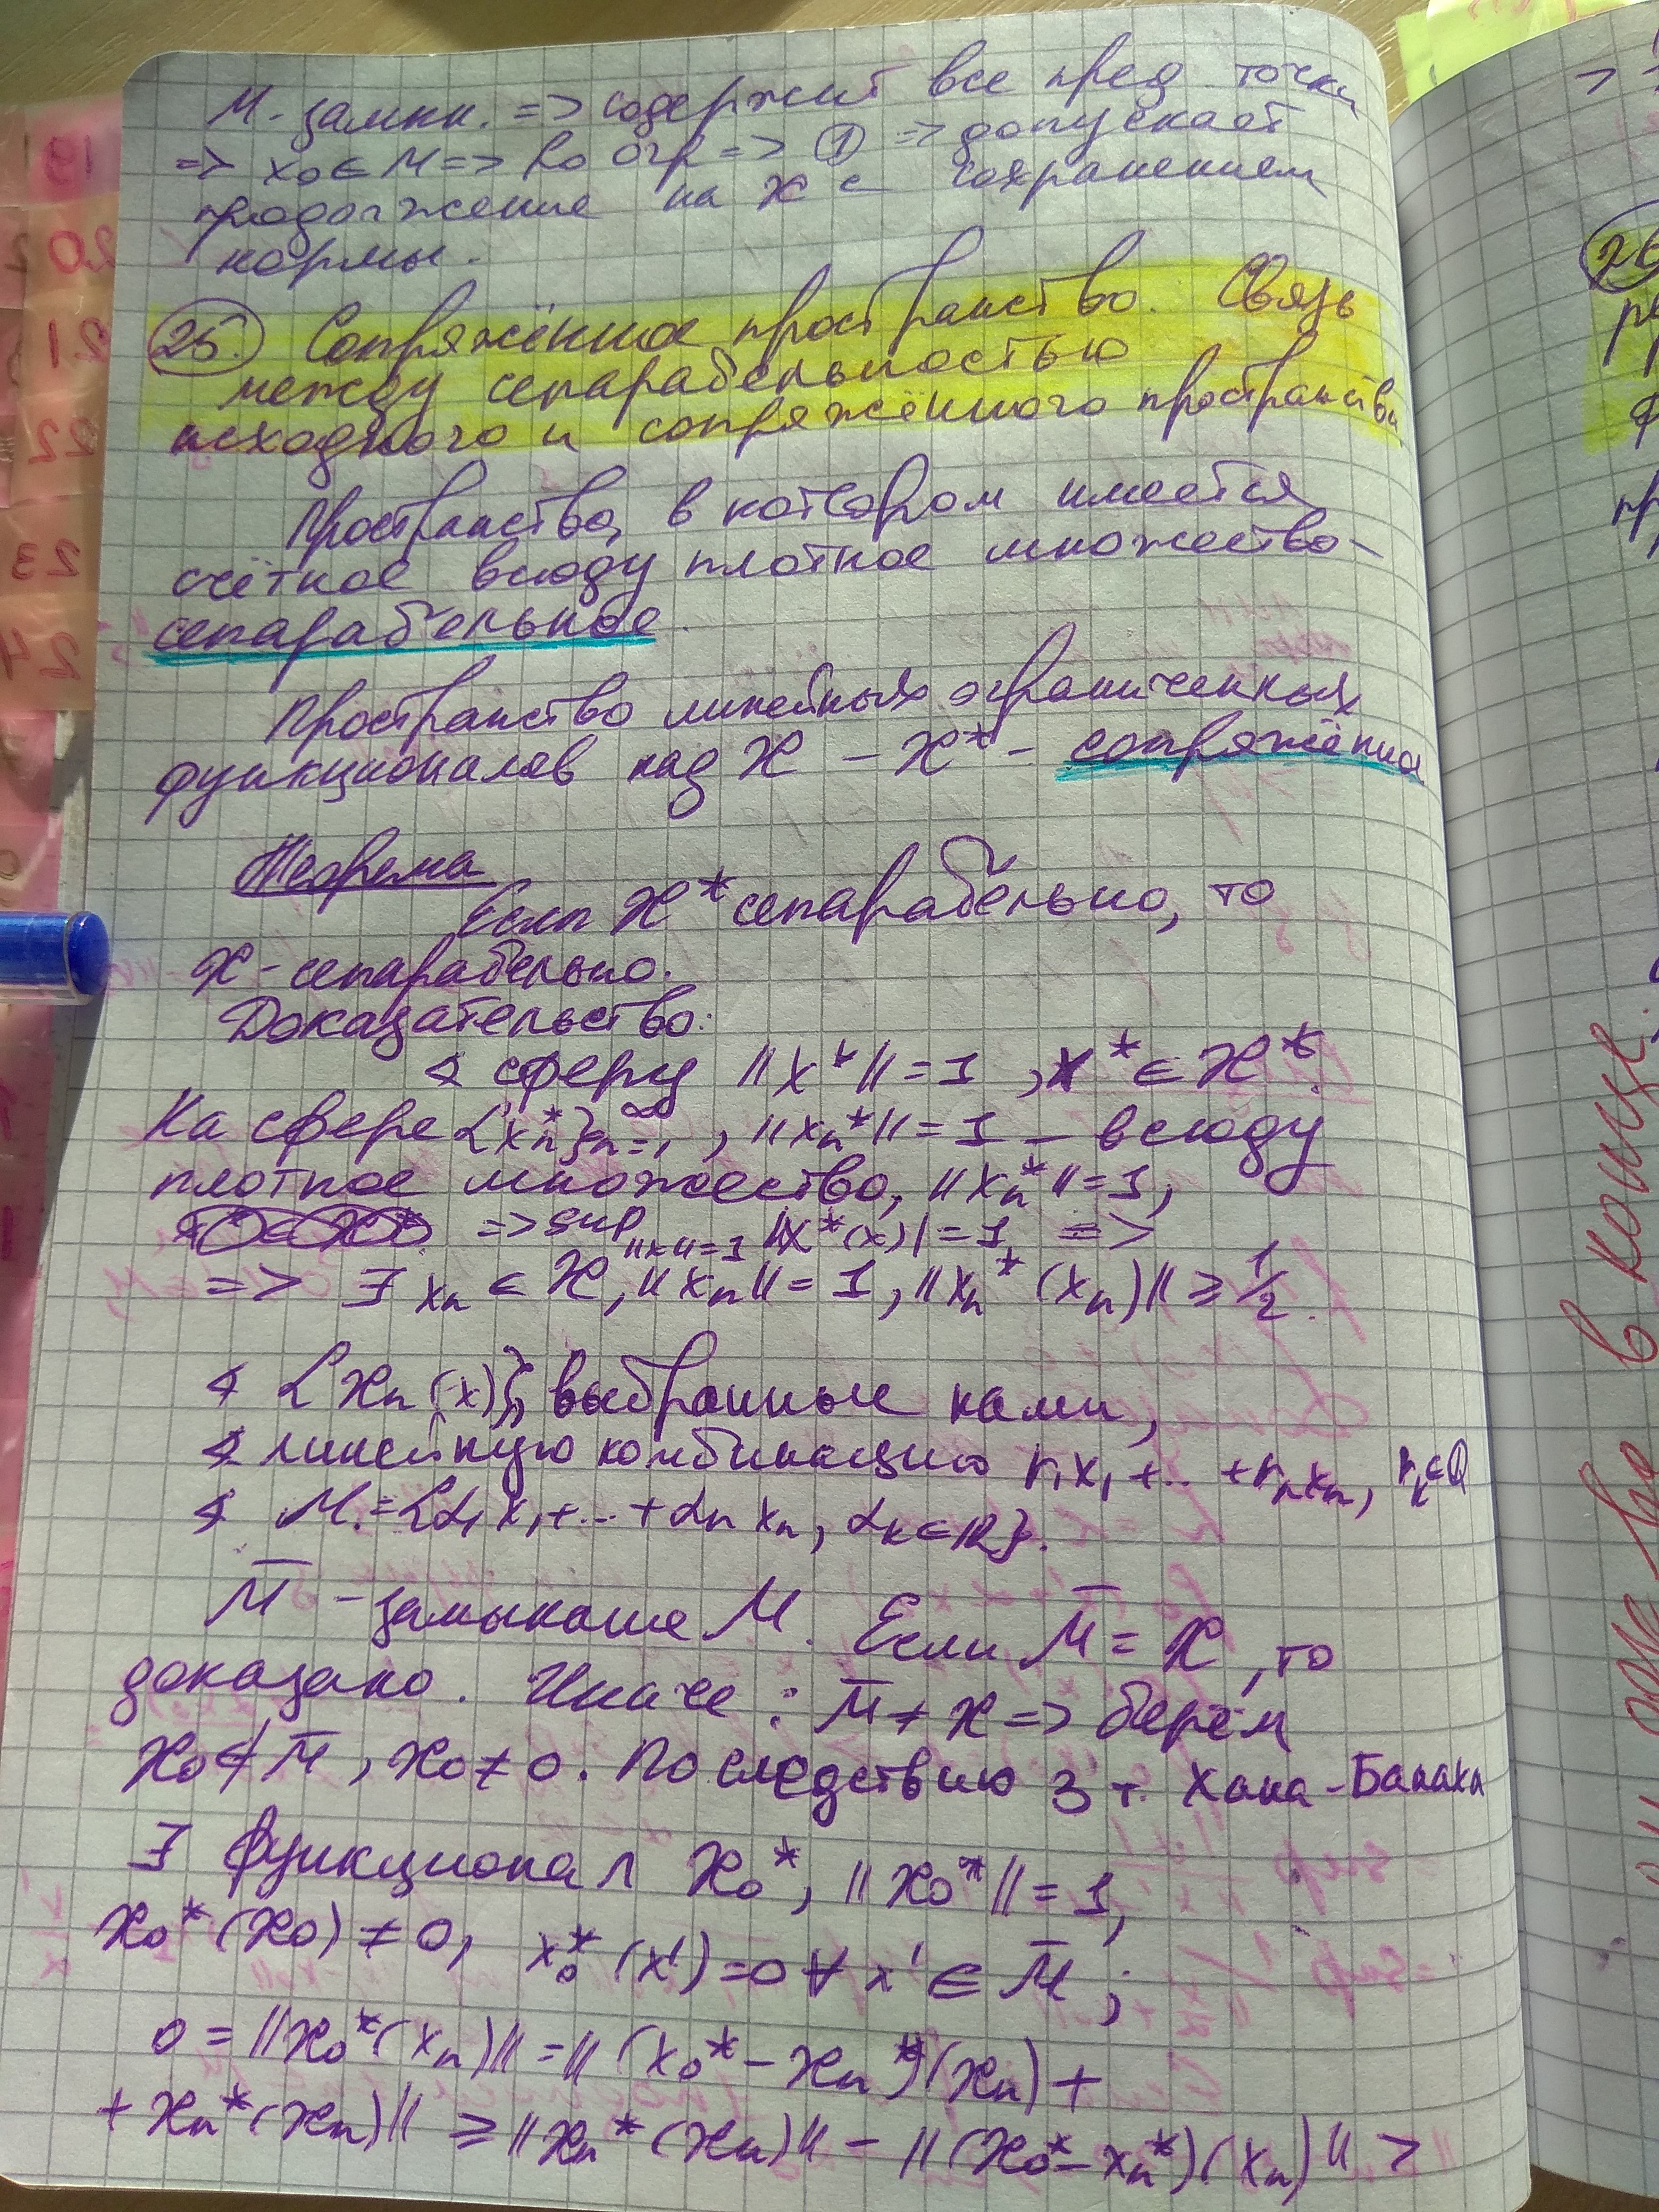 М - замкн. => содержит все пред. точки
=> x₀ ∈ M => f₀ огр => ① => допускает
продолжение на X с сохранением
нормы.
25. Сопряжённое пространство. Связь
между сепарабельностью
исходного и сопряжённого пространства
Пространство, в котором имеется
счётное всюду плотное множество -
сепарабельное.
Пространство линейных ограниченных
функционалов над X - X* - сопряжённое
Теорема
Если X* сепарабельно, то
X - сепарабельно.
Доказательство:
∢ сферу ||x*|| = 1, x* ∈ X*.
На сфере {xₙ*}ₙ₌₁^∞, ||xₙ*|| = 1 - всюду
плотное множество, ||xₙ*|| = 1,
=> sup_{||x||=1} |x*(x)| = 1 =>
=> ∃ xₙ ∈ X, ||xₙ|| = 1, ||xₙ*(xₙ)|| ≥ 1/2.
∢ {xₙ(x)}, выбранные нами,
∢ линейную комбинацию r₁x₁ + .. + rₙxₙ, rₖ ∈ Q
∢ M = {α₁x₁ + ... + αₙxₙ, αₖ ∈ R}.
M̄ - замыкание M. Если M̄ = X, то
доказано. Иначе: M̄ ≠ X => берём
x₀ ∉ M̄, x₀ ≠ 0. По следствию 3 т. Хана-Банаха
∃ функционал x₀*, ||x₀*|| = 1,
x₀*(x₀) ≠ 0, x₀*(x') = 0 ∀ x' ∈ M̄;
0 = ||x₀*(xₙ)|| = ||(x₀* - xₙ*)(xₙ) +
+ xₙ*(xₙ)|| ≥ ||xₙ*(xₙ)|| - ||(x₀* - xₙ*)(xₙ)|| >
19
20
21
22
23
24
26
в конце.